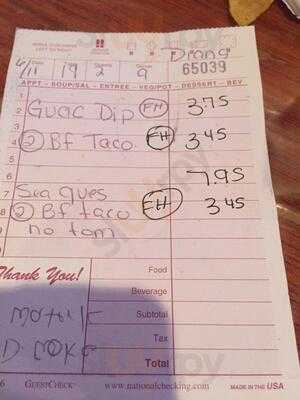 Diana
65039
6/11 19 2 9
APPT - SOUP/SAL - ENTREE - VEG/POT - DESSERT - BEV
1
2 Guac Dip FH 3.75
3
4 ② Bf Taco FH 3.45
5
6 7.95
7 Sea Ques
8 ② Bf taco FH 3.45
no tom
Thank You!
Food
Beverage
Subtotal
Tax
Total
D. COKE
GUESTCHECK™ www.nationalchecking.com MADE IN THE USA